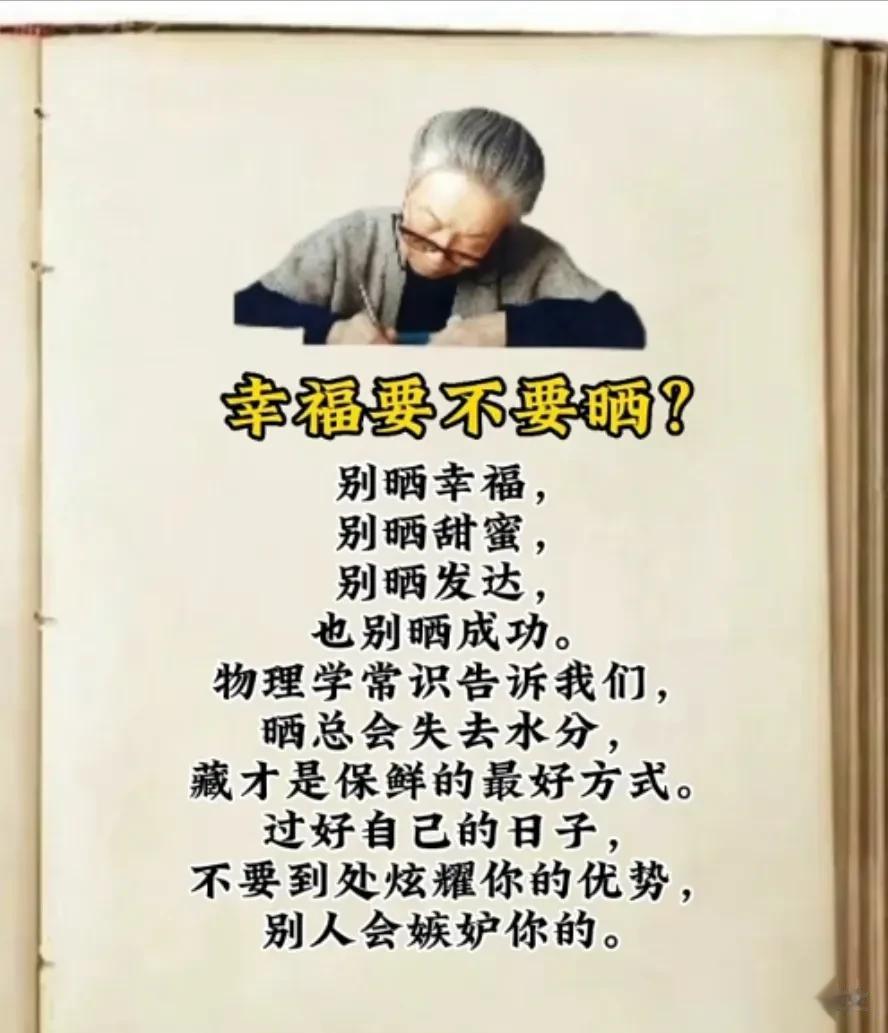 幸福要不要晒？
别晒幸福，
别晒甜蜜，
别晒发达，
也别晒成功。
物理学常识告诉我们，
晒总会失去水分，
藏才是保鲜的最好方式。
过好自己的日子，
不要到处炫耀你的优势，
别人会嫉妒你的。